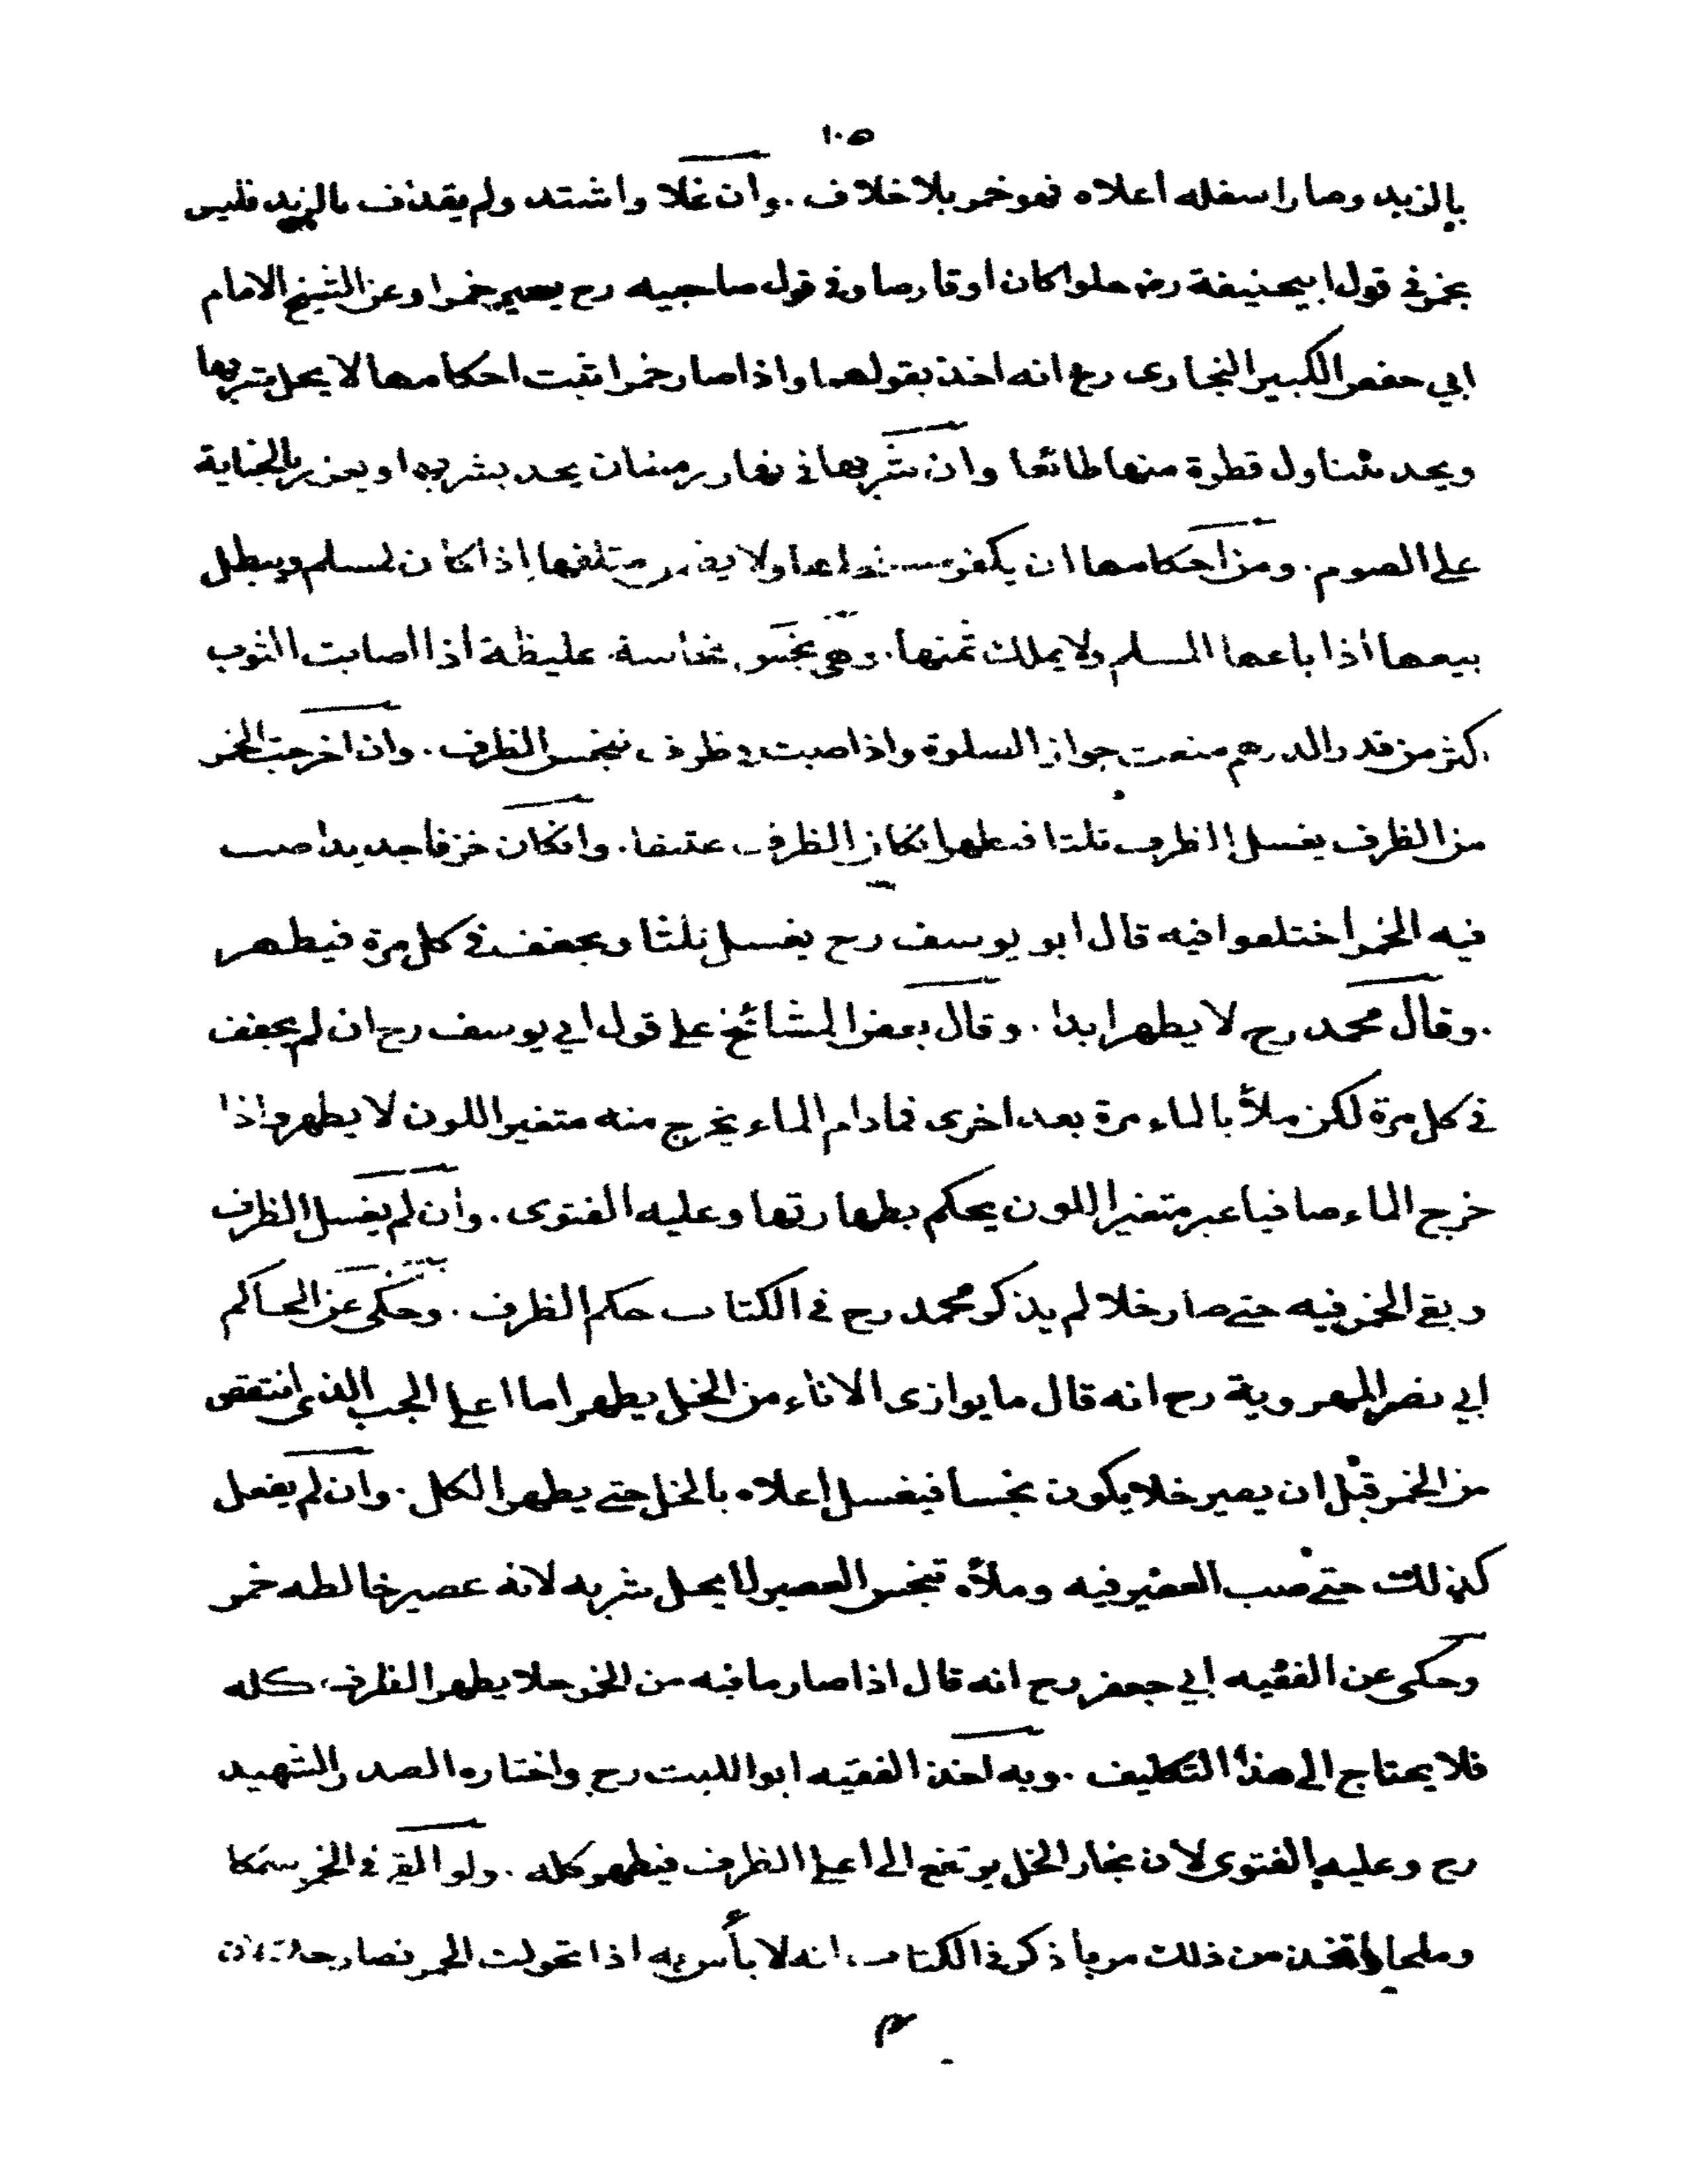 ١٠٥
بالزبد وصار اسفله أعلاه فهو خمر بلا خلاف . وان غلا واشتد ولم يقذف بالزبد فليس
بخمر في قول ابيحنيفة رض حلوا كان او قارصا وفي قول صاحبيه رح يصير خمرا وعن الشيخ الامام
ابي حفص الكبير البخارى رح انه اخذ بقولهما واذا صار خمرا تثبت احكامها لا يحل شربها
ويحد بتناول قطرة منها طائعا وان شربها في نهار رمضان يحد بشربها ويعزر بالجناية
على الصوم . ومن احكامها ان يكفر مستحلها ولا يضمن متلفها اذا كان لمسلم ويبطل
بيعها اذا باعها المسلم ولا يملك ثمنها . وهي نجس نجاسة غليظة اذا اصابت الثوب
اكثر من قدر الدرهم منعت جواز الصلوة واذا صبت في ظرف ينجس الظرف . وان اخرجت الخمر
من الظرف يغسل الظرف ثلثا فيطهر انكان الظرف عتيقا . وانكان خزفا جديدا صب
فيه الخمر اختلفوا فيه قال ابو يوسف رح يغسل ثلثا ويجفف في كل مرة فيطهر
. وقال محمد رح لا يطهر ابدا . وقال بعض المشائخ على قول ابي يوسف رح ان لم يجفف
في كل مرة لكن ملأ بالماء مرة بعد اخرى فمادام الماء يخرج منه متغير اللون لا يطهر واذا
خرج الماء صافيا غير متغير اللون يحكم بطهارتها وعليه الفتوى . وان لم يغسل الظرف
وبقي الخمر فيه حتى صار خلا لم يذكر محمد رح في الكتاب حكم الظرف . وحكى عن الحاكم
ابي نصر المهروية رح انه قال ما يوازى الاناء من الخل يطهر اما اعلى الجب الذي انتقص
من الخمر قبل ان يصير خلا يكون نجسا فيغسل اعلاه بالخل حتى يطهر الكل . وان لم يفعل
كذلك حتى صب العصير فيه وملأه تنجس العصير لا يحل شربه لانه عصير خالطه خمر
وحكى عن الفقيه ابي جعفر رح انه قال اذا صار ما فيه من الخمر خلا يطهر الظرف كله
فلا يحتاج الى هذا التكليف . وبه اخذ الفقيه ابو الليث رح واختاره الصدر الشهيد
رح وعليه الفتوى لان بخار الخل يرتفع الى اعلى الظرف فيطهر كله . ولو القي في الخمر سمكا
وملحا واتخذ من ذلك مربا ذكر في الكتاب انه لا بأس به اذا تحولت الخمر فصار